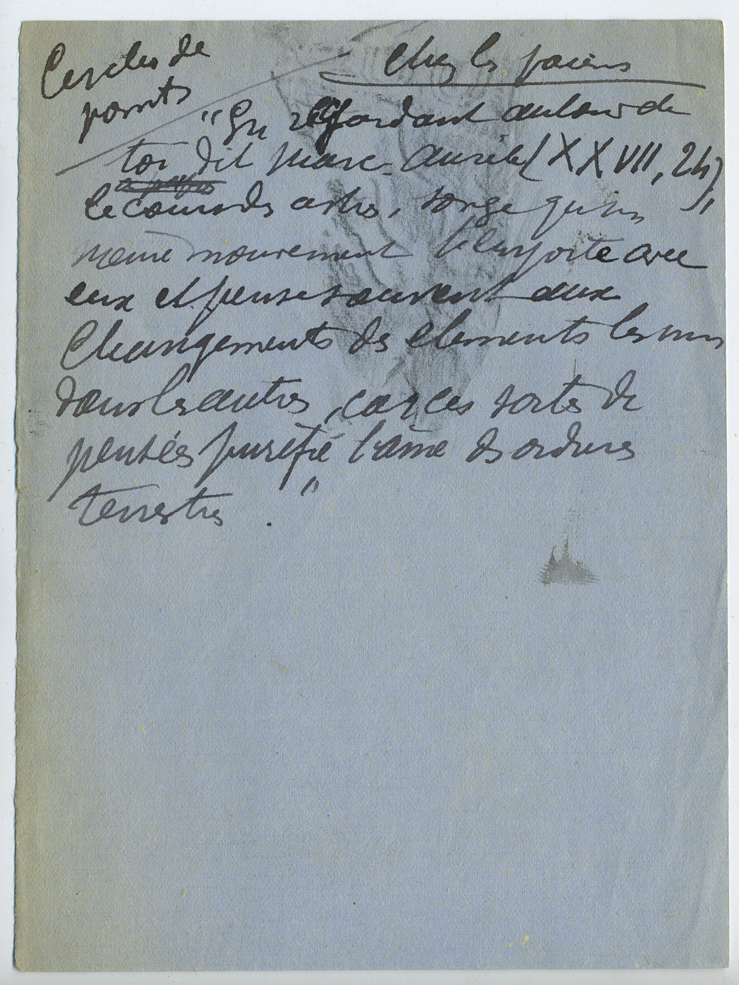 Cercles de
points
Chez les païens
"En regardant autour de
toi dit Marc-Aurèle (XXVII, 24),
le cours des astres, songe qu'un
même mouvement t'emporte avec
eux et pense souvent aux
changements des éléments les uns
dans les autres, car ces sortes de
pensées purifie l'âme des ordures
terrestres."